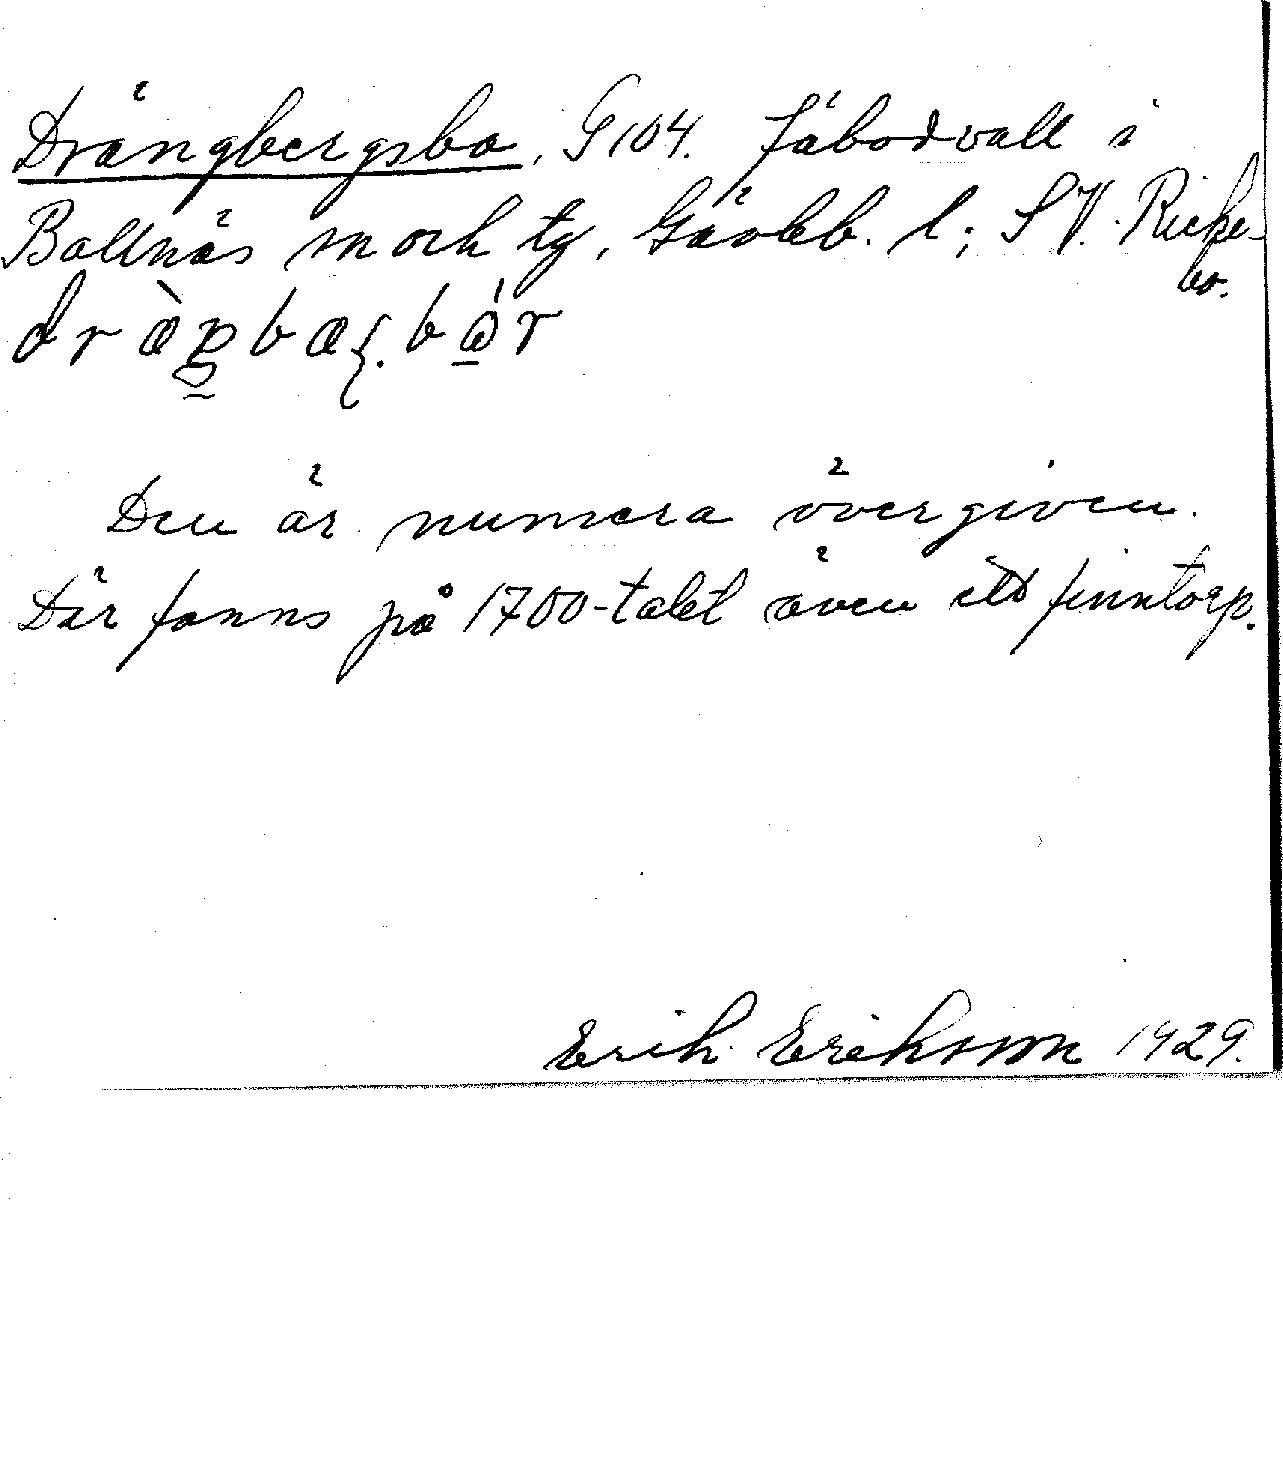 Drängbergsbo. G 104. Fäbodvall i
Bollnäs sn och tg, Gävleb. l; S V. Rickebo.
Den är numera övergiven.
Där fanns på 1700-talet även ett finntorp.
Erik Eriksson 1929.